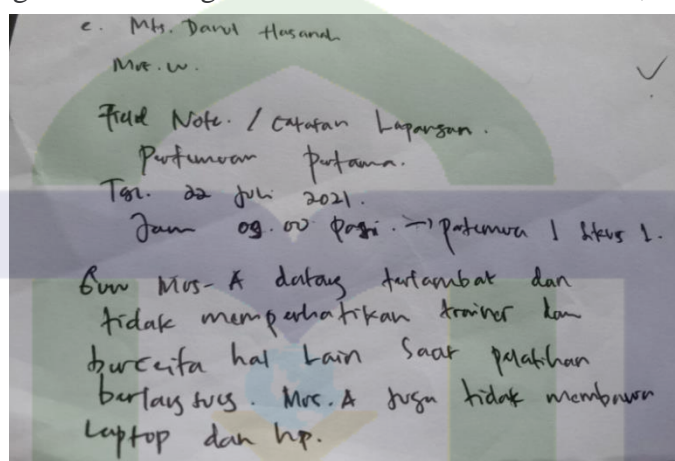 c. Mts. Darul Hasanah
Mrs. W.
Field Note. / Catatan Lapangan.
Pertemuan pertama.
Tgl. 22 Juli 2021.
Jam 09.00 pagi. → pertemuan 1 siklus 1.
Guru Mrs-A datang terlambat dan
tidak memperhatikan trainer dan
bercerita hal Lain Saat pelatihan
berlangsung. Mrs. A juga tidak membawa
Laptop dan hp.